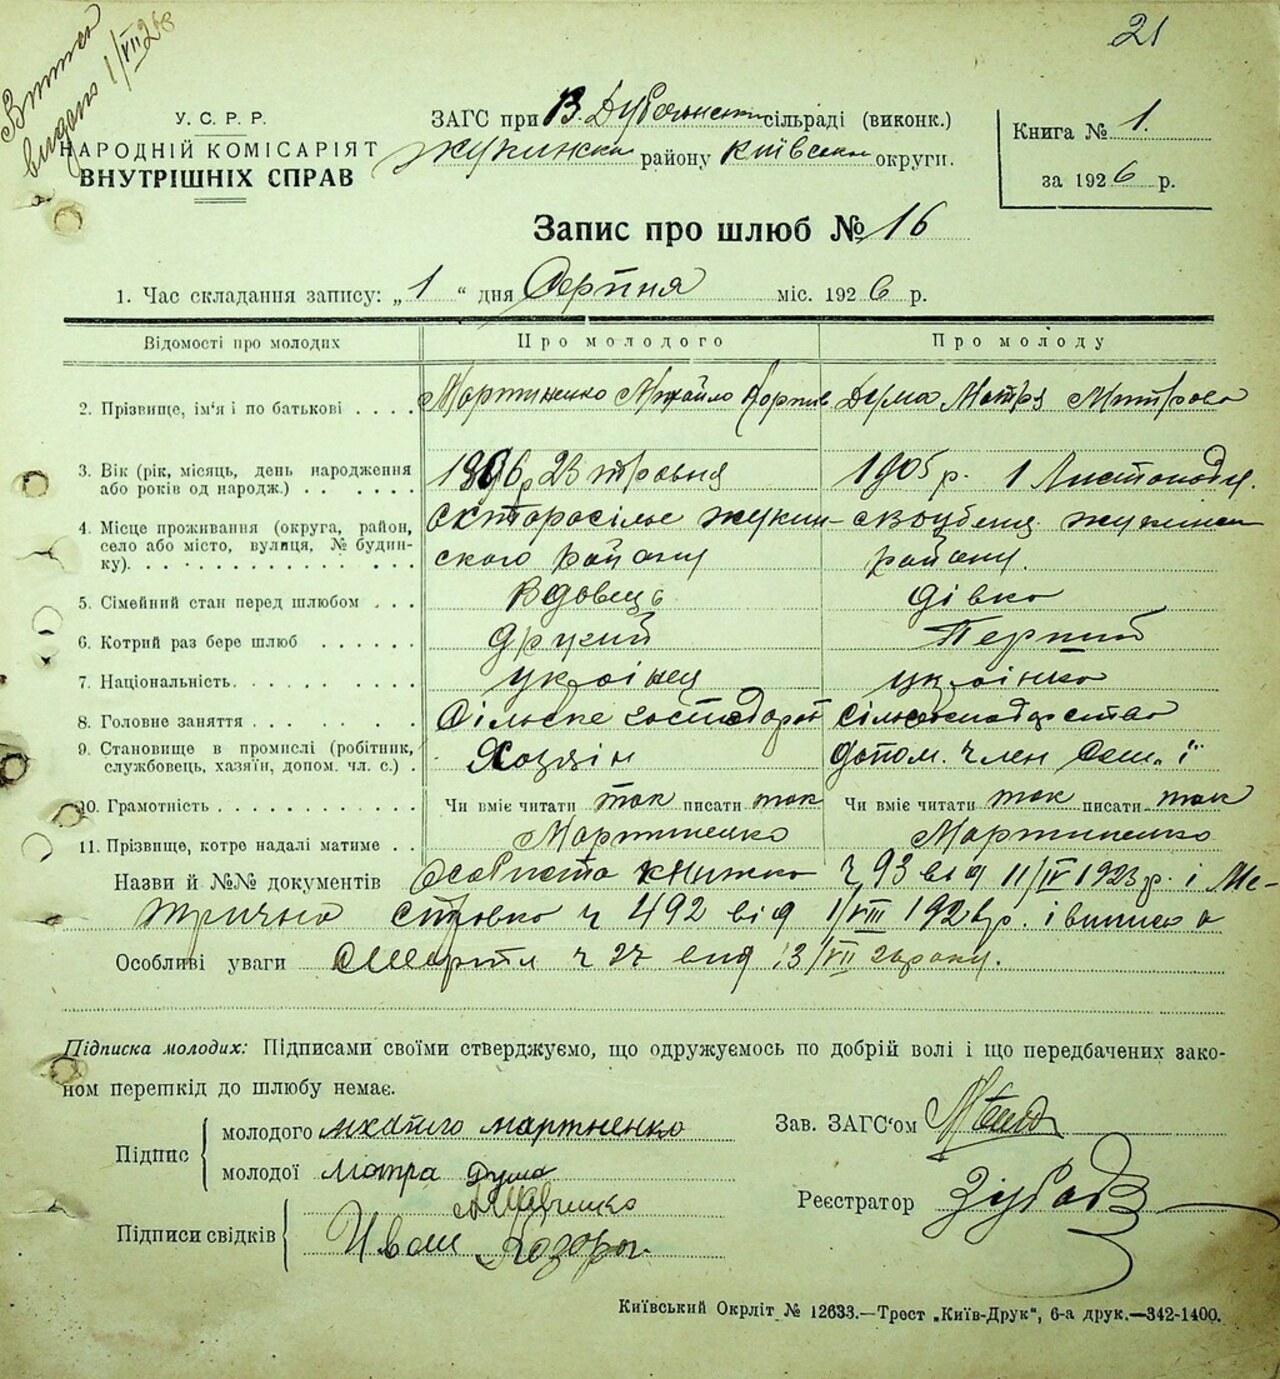 21
Витяг
видано 1/VII 28
У.С.Р.Р.
НАРОДНІЙ КОМІСАРІЯТ
ВНУТРІШНІХ СПРАВ
ЗАГС при В. Дубечнскі сільраді (виконк.)
Жукинськ району Київсько округи.
Книга № 1.
за 1926 р.
Запис про шлюб № 16
1. Час складання запису: „1“ дня Серпня міс. 1926 р.
Відомості про молодих Про молодого Про молоду
2. Прізвище, ім'я і по батькові . . . . Мартиненко Михайло Карпів Дума Мотря Митрова
3. Вік (рік, місяць, день народження або років од народж.) . . . . . . . 1896 р 23 травня 1905 р. 1 Листопада.
4. Місце проживання (округа, район, село або місто, вулиця, № будинку). . . . . . . . . Старосілье Жукинського району району.
5. Сімейний стан перед шлюбом . . . Вдовець дівка
6. Котрий раз бере шлюб . . . . . . другий Перший
7. Національність. . . . . . . . . українец українка
8. Головне заняття . . . . . . . Сільске господарст сільгосподарство
9. Становище в промислі (робітник, службовець, хазяїн, допом. чл. с.) . Хозяін допом. член сем.ї
10. Грамотність . . . . . . . . . . Чи вміє читати так писати так Чи вміє читати так писати так
11. Прізвище, котре надалі матиме . . Мартиненко Мартиненко
Назви й №№ документів Особиста книжка ч 93 від 11/IV 1923 р. і Ме-
трична ч 492 від 1/VIII 192 р. і виписка
Особливі уваги смерті ч 27 від 13/VII 26 року.
Підписка молодих: Підписами своїми стверджуємо, що одружуємось по добрій волі і що передбачених зако-
ном перешкід до шлюбу немає.
Підпис
молодого михайло мартиненко
молодої мотра Дума
Підписи свідків
Иван
Зав. ЗАГС'ом
Реєстратор
Київський Окрліт № 12633.—Трест „Київ-Друк“, 6-а друк.—342-1400.